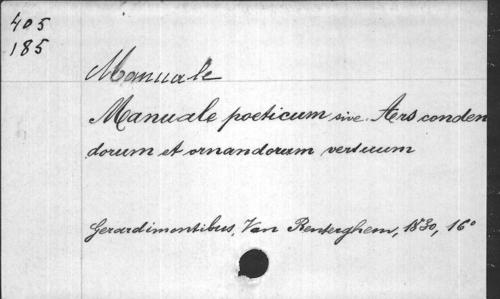 405
185
Manuale
Manuale poeticum sive Ars conden
dorum et ornandorum versuum
Gerardimontibus, Van Renterghem, 1830, 16°